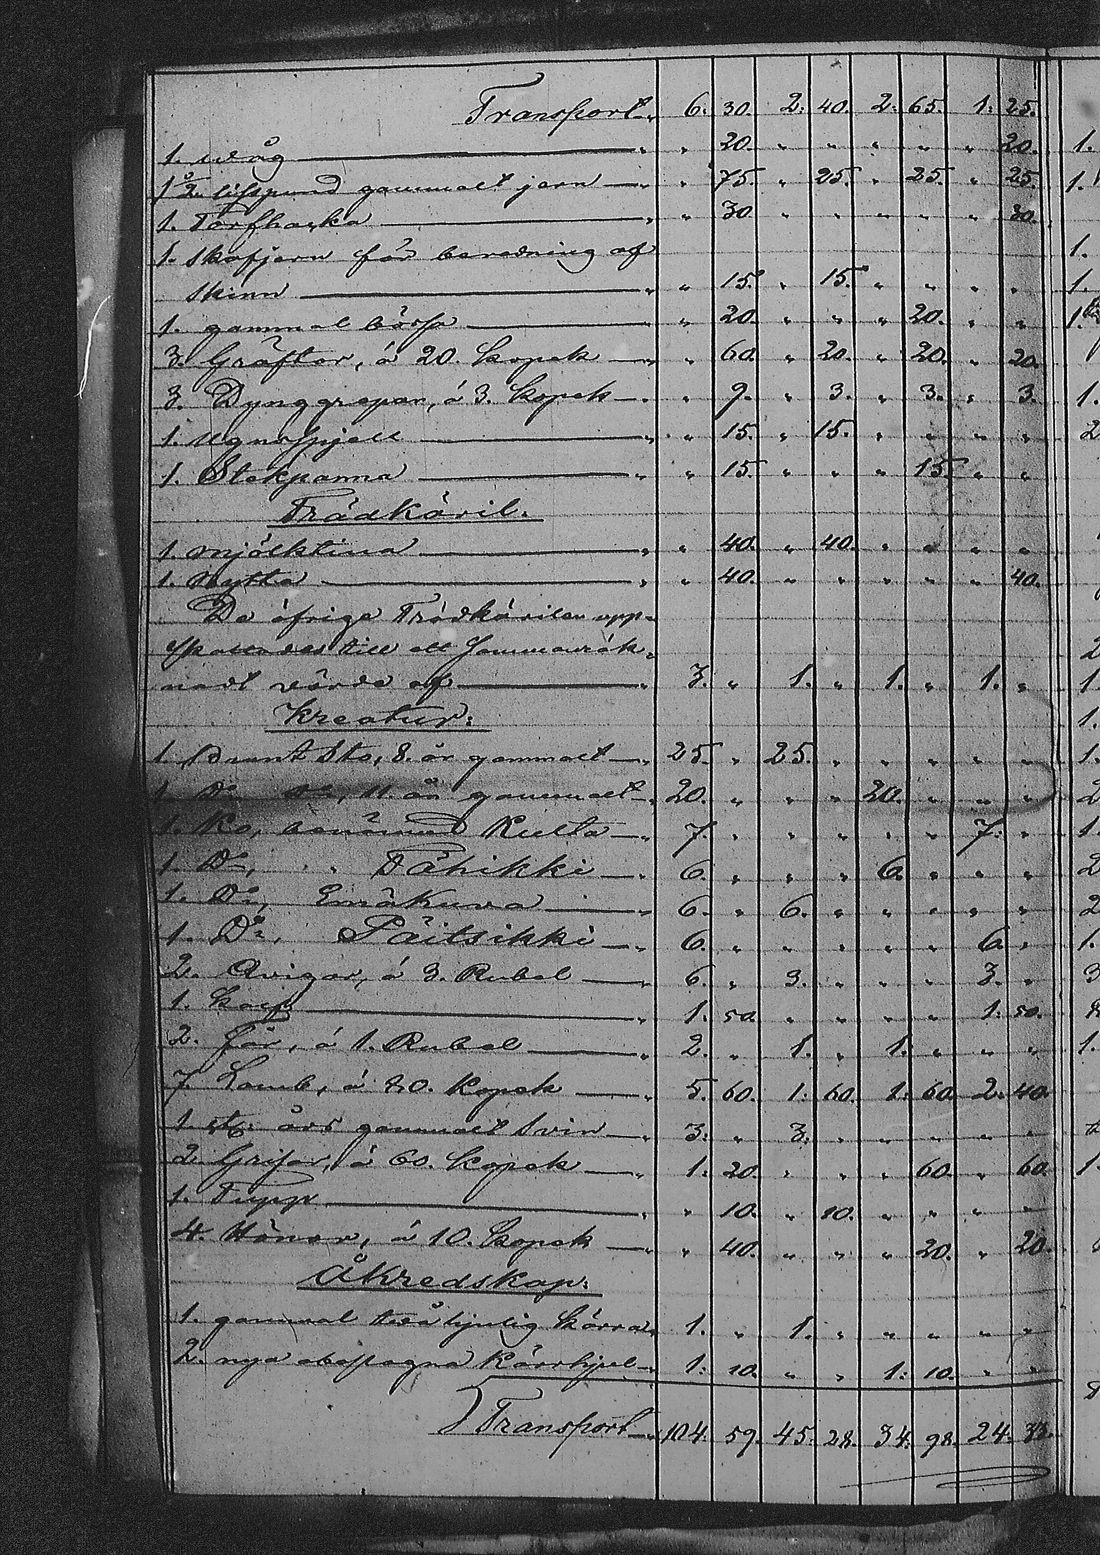 Transport „ 6: 30. 2: 40. 2: 65. 1: 25.
1. våg „ „ 20. „ „ „ „ „ 20.
1 ½ lispund gammalt jern „ „ 75. „ 25. „ 25. „ 25.
1. Torfhacka „ „ 30 „ „ „ „ „ 30.
1. skafjern för beredning af
skinn „ „ 15. „ 15. „ „ „ „
1. gammal bössa „ „ 20. „ „ „ 20. „ „
3. Gräftor, á 20. kopek „ „ 60. „ 20. „ 20. „ 20.
3. Dynggrepar, á 3. kopek „ „ 9. „ 3. „ 3. „ 3.
1. ugnsspjell „ „ 15. „ 15. „ „ „ „
1. Stekpanna „ „ 15. „ „ „ 15. „ „
Trädkäril.
1 mjölktina „ „ 40. „ 40. „ „ „ „
1. Bytta „ „ 40. „ „ „ „ „ 40.
De öfriga Trädkärilen upp-
skattades till ett sammanräk-
nadt värde af „ 3. „ 1. „ 1. „ 1. „
Kreatur:
1 Brunt Sto, 8. år gammalt „ 25. „ 25. „ „ „ „ „
1 Do Do, 11. år gammalt „ 20. „ „ „ 20. „ „ „
1. Ko, benämnd Kulta „ 7. „ „ „ „ „ 7. „
1. Do, „ Tähikki „ 6. „ „ „ 6. „ „ „
1. Do, Emäkuva „ 6. „ 6. „ „ „ „ „
1. Do, Päitsikki „ 6. „ „ „ „ „ 6. „
2. Qvigor, á 3. Rubel „ 6. „ 3. „ „ „ 3. „
1. kalf „ 1. 50. „ „ „ „ 1. 50.
2. får, á 1. Rubel „ 2. „ 1. „ 1. „ „ „
7. Lamb, á 80. kopek „ 5. 60. 1: 60. 1: 60. 2: 40.
1. års gammalt svin „ 3. „ 3. „ „ „ „ „
2 Grisar, á 60. kopek „ 1: 20. „ „ „ 60. „ 60.
1. Tupp „ „ 10. „ 10. „ „ „ „
4. Hönor, á 10. kopek „ „ 40. „ „ „ 20. „ 20.
Åkredskap.
1. gammal tvåhjulig kärra „ 1. „ 1. „ „ „ „ „
2. nya obeslagna kärrhjul „ 1: 10. „ „ 1: 10. „ „
Transport „ 104: 59. 45: 28. 34: 98. 24: 33.